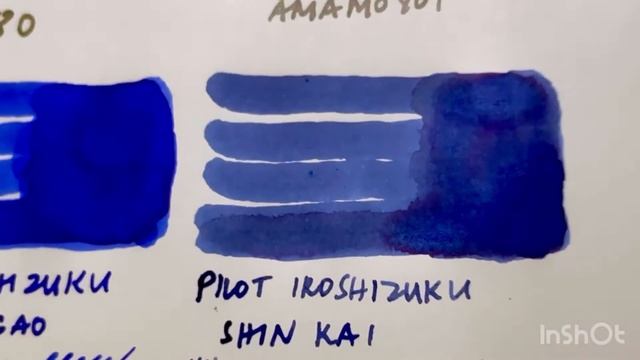 80
AMAMOYOI
HIZUKU
GAO
PILOT IROSHIZUKU
SHIN KAI
InShOt